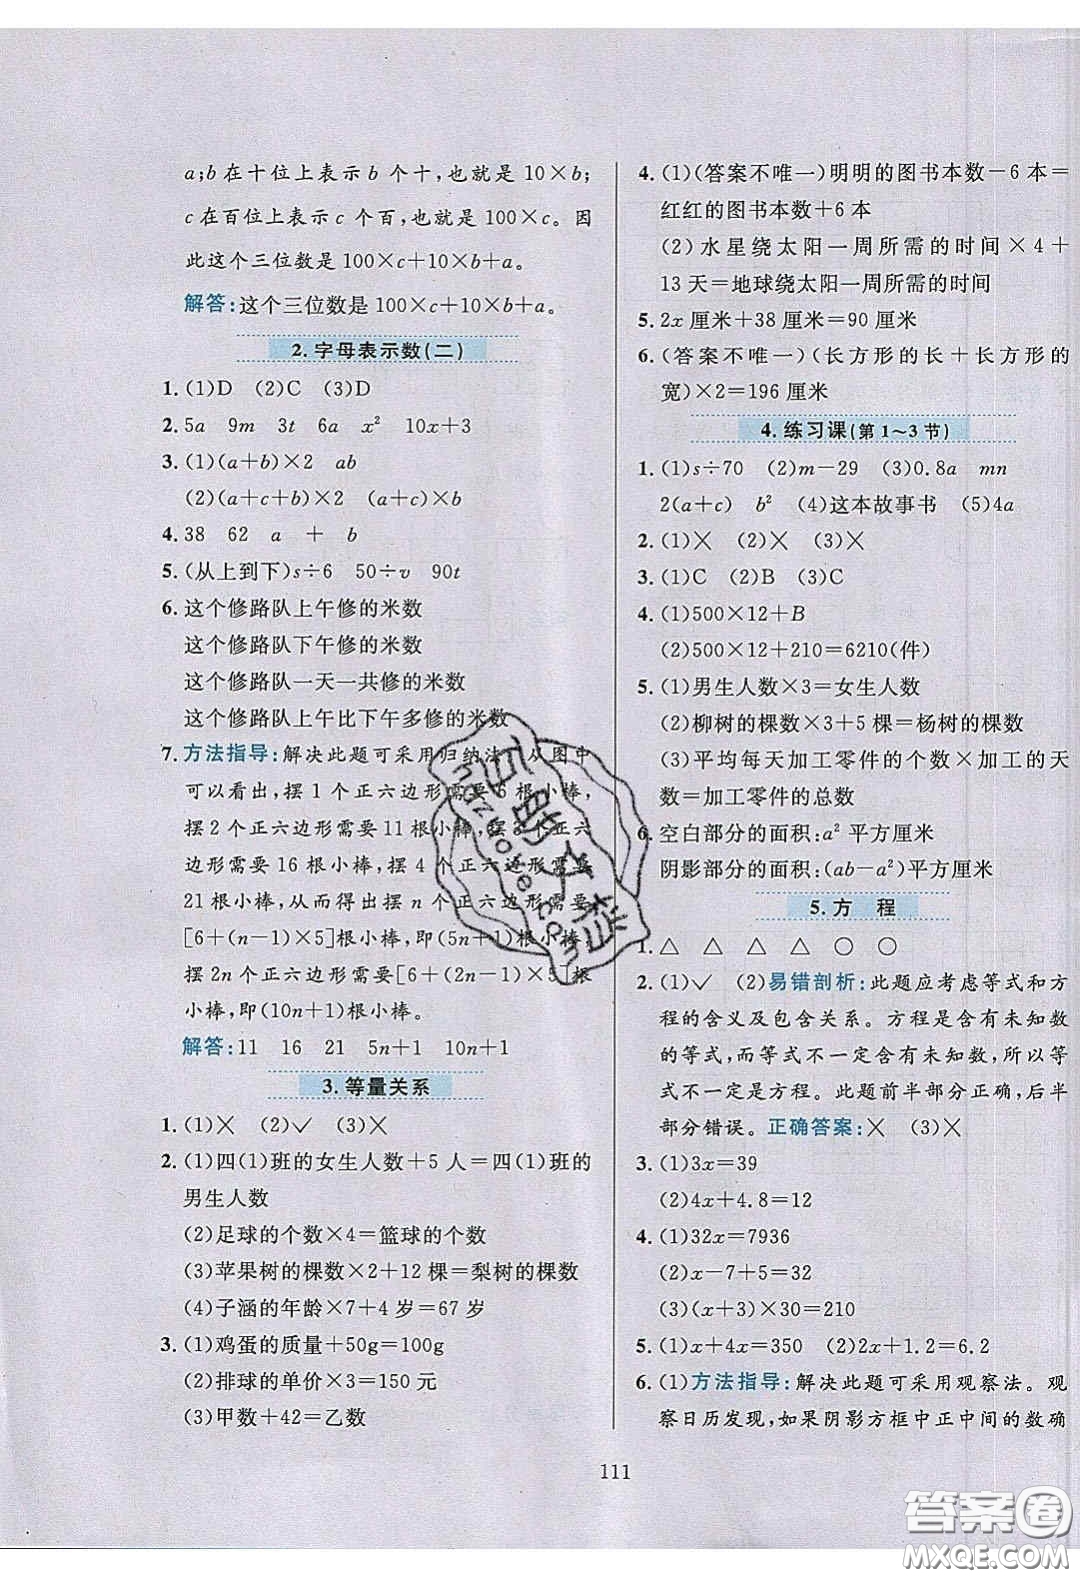 a;b在十位上表示b个十,也就是10×b;
c在百位上表示c个百,也就是100×c。因
此这个三位数是100×c+10×b+a。
解答:这个三位数是100×c+10×b+a。
2.字母表示数(二)
1.(1)D (2)C (3)D
2.5a 9m 3t 6a x² 10n+3
3.(1)(a+b)×2 ab
(2)(a+c+b)×2 (a+c)×b
4.38 62 a + b
5.(从上到下)s÷6 50÷v 90t
6.这个修路队上午修的米数
这个修路队下午修的米数
这个修路队一天一共修的米数
这个修路队上午比下午多修的米数
7.方法指导:解决此题可采用归纳法,从图中
可以看出,摆1个正六边形需要6根小棒,
摆2个正六边形需要11根小棒,摆3个正六
边形需要16根小棒,摆4个正六边形需要
21根小棒,从而得出摆n个正六边形需要
[6+(n-1)×5]根小棒,即(5n+1)根小棒,
摆2n个正六边形需要[6+(2n-1)×5]根
小棒,即(10n+1)根小棒。
解答:11 16 21 5n+1 10n+1
3.等量关系
1.(1)× (2)✓ (3)×
2.(1)四(1)班的女生人数+5人=四(1)班的
男生人数
(2)足球的个数×4=篮球的个数
(3)苹果树的棵数×2+12棵=梨树的棵数
(4)子涵的年龄×7+4岁=67岁
3.(1)鸡蛋的质量+50g=100g
(2)排球的单价×3=150元
(3)甲数+42=乙数
4.(1)(答案不唯一)明明的图书本数-6本=
红红的图书本数+6本
(2)水星绕太阳一周所需的时间×4+
13天=地球绕太阳一周所需的时间
5.2x厘米+38厘米=90厘米
6.(答案不唯一)(长方形的长+长方形的
宽)×2=196厘米
4.练习课(第1~3节)
1.(1)s÷70 (2)m-29 (3)0.8a mn
2(a+c) b² (4)这本故事书 (5)4a
2.(1)× (2)× (3)×
3.(1)C (2)B (3)C
4.(1)500×12+B
(2)500×12+210=6210(件)
5.(1)男生人数×3=女生人数
(2)柳树的棵数×3+5棵=杨树的棵数
(3)平均每天加工零件的个数×加工的天
数=加工零件的总数
6.空白部分的面积:a²平方厘米
阴影部分的面积:(ab-a²)平方厘米
5.方 程
1.△ △ △ △ ○ ○
2.(1)✓ (2)易错剖析:此题应考虑等式和方
程的含义及包含关系。方程是含有未知数
的等式,而等式不一定含有未知数,所以等
式不一定是方程。此题前半部分正确,后半
部分错误。正确答案:× (3)×
3.(1)3x=39
(2)4x+4.8=12
4.(1)32x=7936
(2)x-7+5=32
(3)(x+3)×30=210
5.(1)x+4x=350 (2)2x+1.2=6.2
6.(1)方法指导:解决此题可采用观察法。观
察日历发现,如果阴影方框中正中间的数确
111
答案圈
MXQE.COM